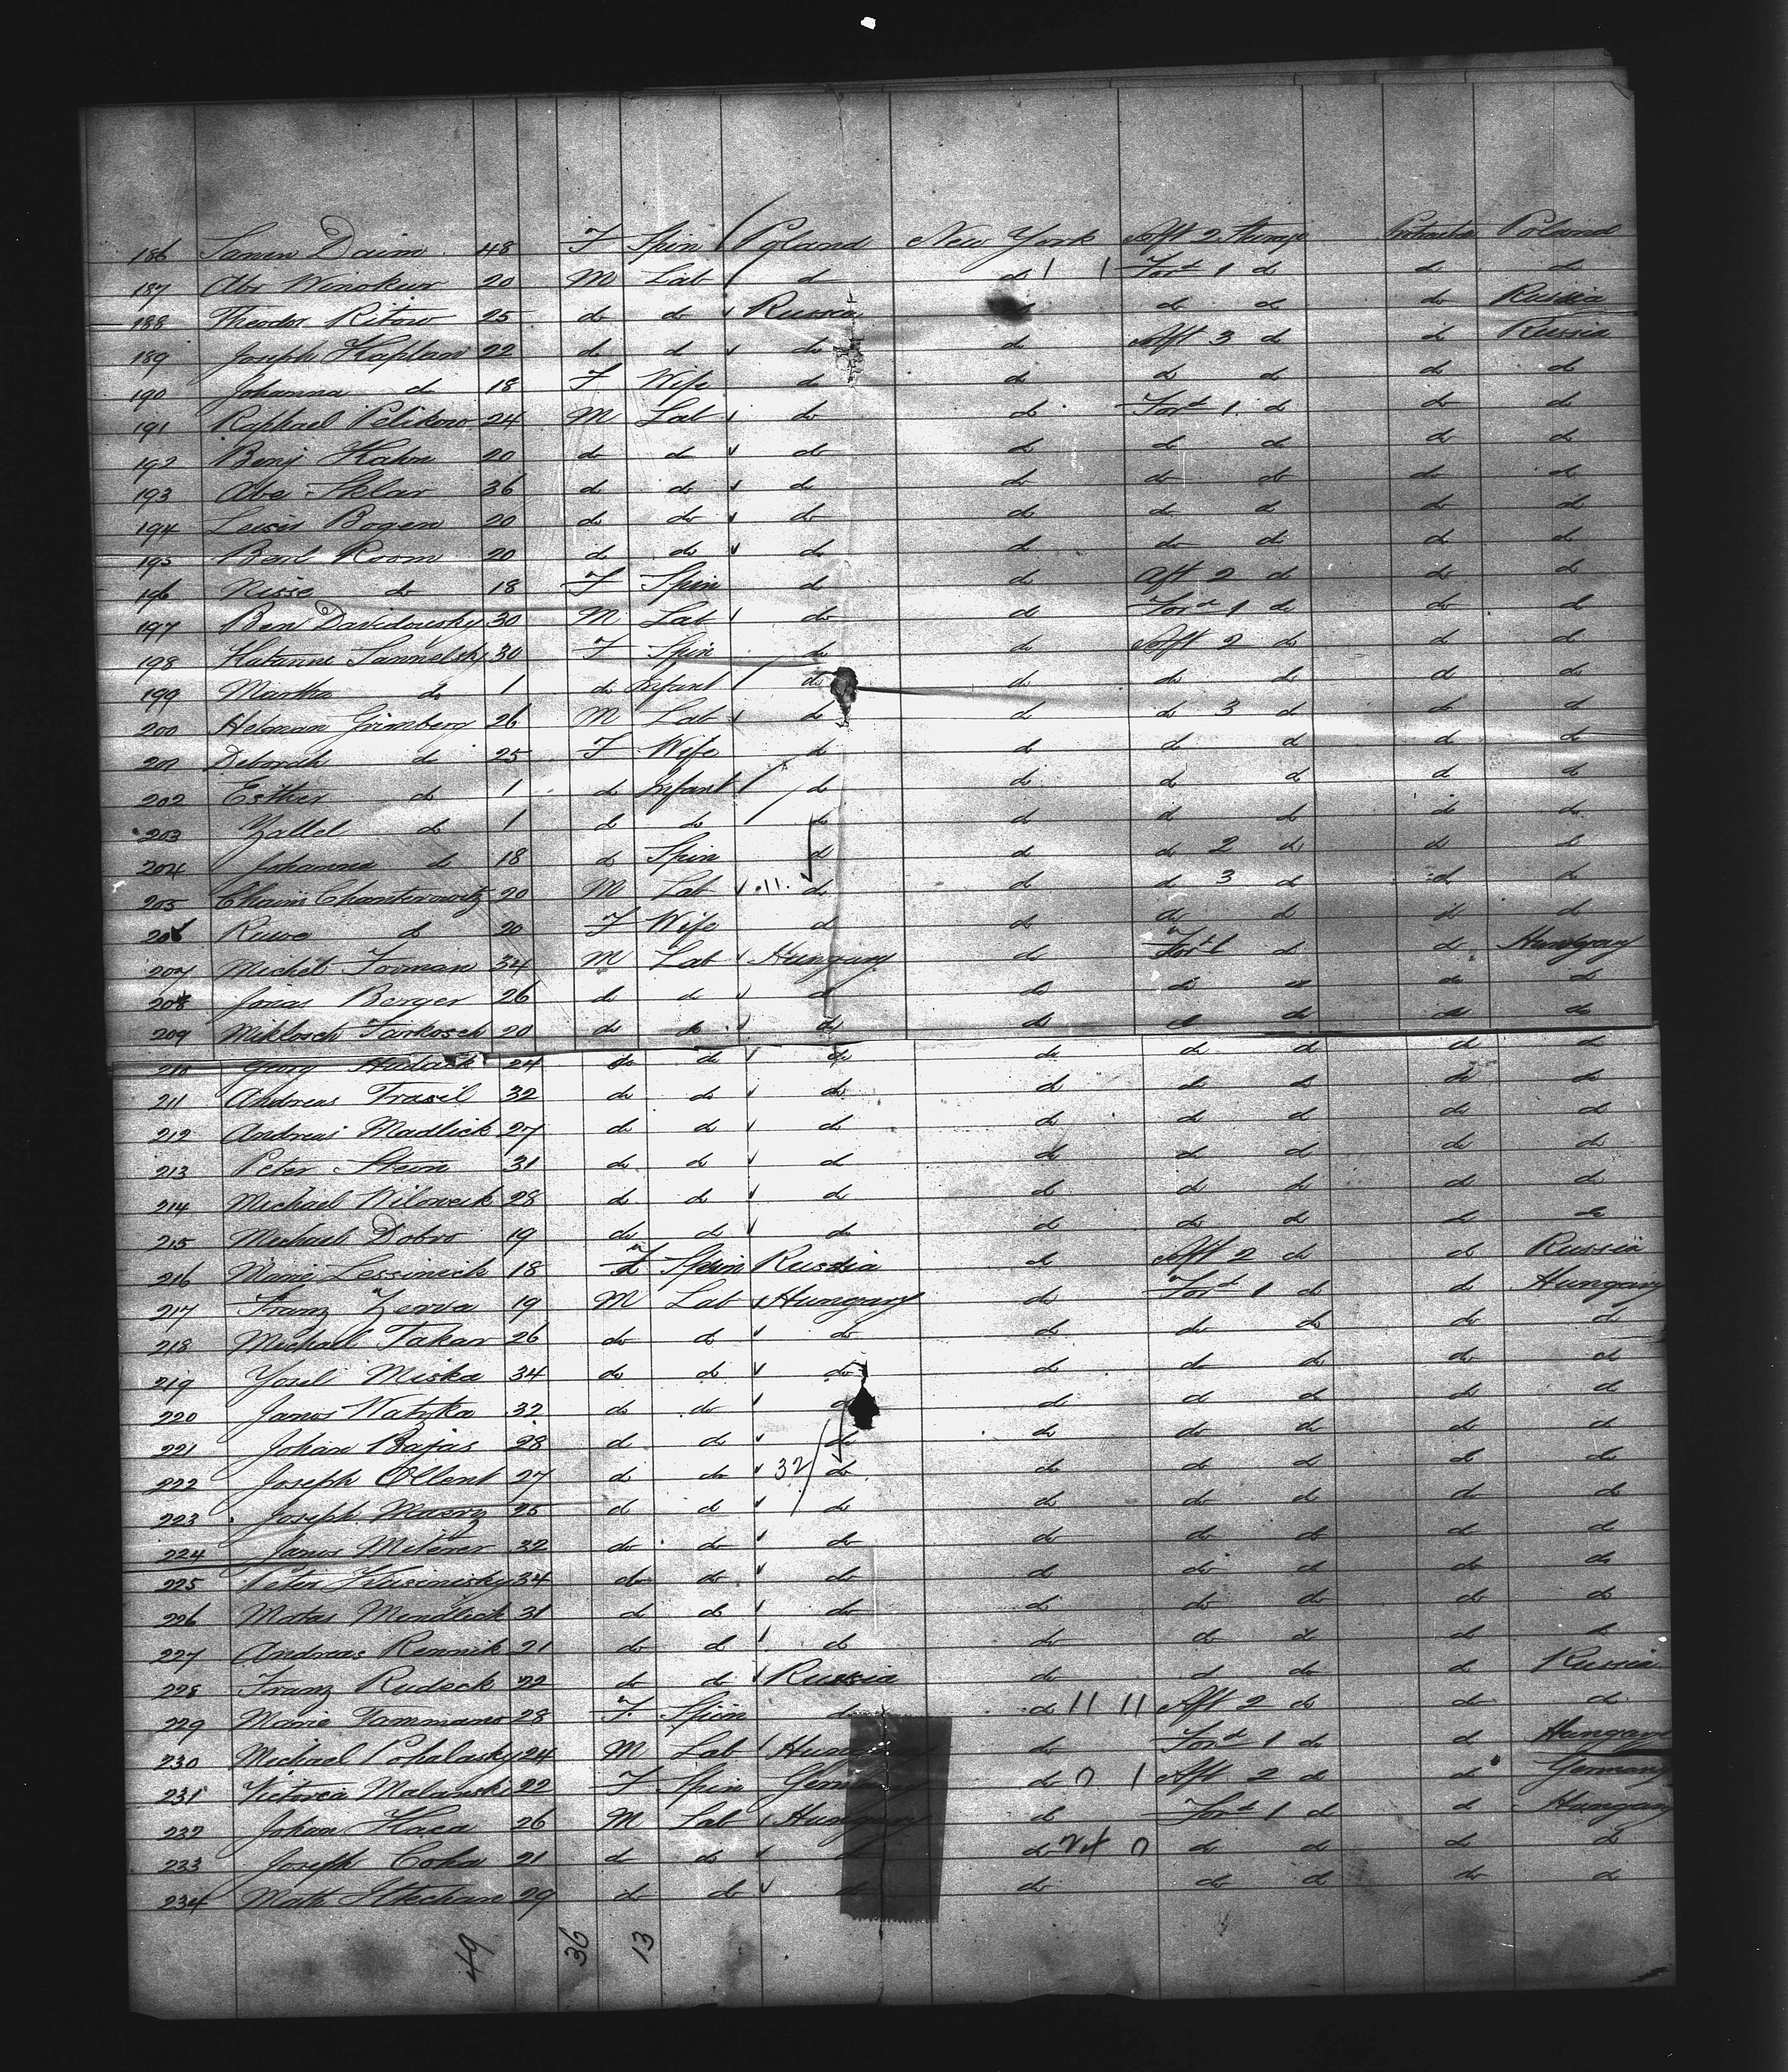 186 Daim 48 F Spin Poland New York Aft 2 Steerage Protracted Poland
187 Abr Winokur 20 M Lab do do 1 1 Ford 1 do do do
188 Theodor Ritow 25 do do Russia do do do Russia
189 Joseph Kaplan 22 do do do do Aft 3 do do Russia
190 Johanna do 18 F Wife do do do do do do
191 Raphael Pelikow 24 M Lab do do Ford 1 do do do
192 Benj Kahn 20 do do do do do do do do
193 Abe Sklar 36 do do do do do do do do
194 Leisir Bogen 20 do do do do do do do do
195 Berl Room 20 do do do do do do do do
196 Nisse do 18 F Spin do do Aft 2 do do do
197 Ben Davidowsky 30 M Lab do do Ford 1 do do do
198 30 F Spin do do Aft 2 do do do
199 Martha do 1 do Infant do do do do do do
200 Helman Grimberg 26 M Lab do do do 3 do do do
201 Deborah do 25 F Wife do do do do do do
202 Esther do 1 do Infant do do do do do do
203 Zallel do 1 do do do do do do do do
204 Johanna do 18 do Spin do do do 2 do do do
205 Chaim 20 M Lab 11 do do do 3 do do do
206 Ruwe do 20 F Wife do do do do do do
207 Michel Forman 34 M Lab Hungary do Ford 1 do do Hungary
208 Jonas Berger 26 do do do do do do do do
209 Miklosch Farkosch 20 do do do do do do do do
210 Georg Hudack 24 do do do do do do do do
211 Andreas Trasil 32 do do do do do do do do
212 Andreas Madlick 27 do do do do do do do do
213 Peter Stein 31 do do do do do do do do
214 Michael 28 do do do do do do do do
215 Michael Dobro 19 do do do do do do do do
216 Marie Lessinick 18 F Spin Russia do Aft 2 do do Russia
217 Franz Zerva 19 M Lab Hungary do Ford 1 do do Hungary
218 Michael Takar 26 do do do do do do do do
219 Miska 34 do do do do do do do do
220 Janos Watyka 32 do do do do do do do do
221 Johan Bajas 28 do do do do do do do do
222 Joseph Ollent 27 do do 32 do do do do do do
223 Joseph 25 do do do do do do do do
224 Janos Miterer 32 do do do do do do do do
225 Peter 34 do do do do do do do do
226 Matas Mendlick 31 do do do do do do do do
227 Andreas Rennik 21 do do do do do do do do
228 Franz Rudeck 22 do do Russia do do do do Russia
229 Marie Tammano 28 F Spin do do 11 11 Aft 2 do do do
230 Michael Popalasky 24 M Lab Hungary do Ford 1 do do Hungary
231 Victoria Malanski 22 F Spin Germany do 0 1 Aft 2 do do Germany
232 Johan Haca 26 M Lab Hungary do Ford 1 do do Hungary
233 Joseph Coka 21 do do do do 24 0 do do do do
234 Math 29 do do do do do do do do
49 36 13